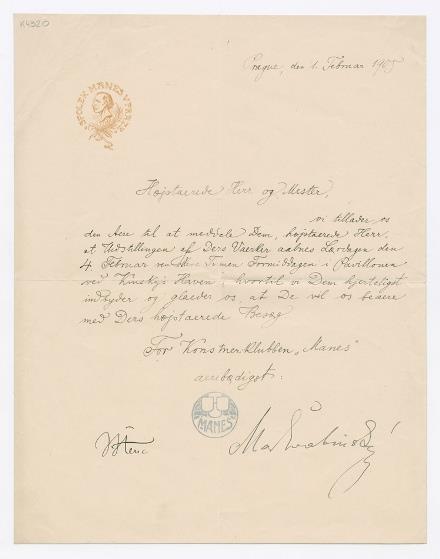 K4320
Prague, den 1. Februar 1905
SPOLEK MANES V PRAZE
Højstaerede Herr og Mester,
vi tillader os
den Aere til at meddele Dem, højstaerede Herr,
at Udstillingen af Ders Vaerker aabnes Lørdagen den
4. Februar ved Timen Formiddagen i Pavillonen
ved Kinsky's Haven, hvortil vi Dem hjerteligst
indbyder og glaeder os, at De vil os beaere
med Ders højstaerede Besøg
For Konstnerklubben "Manes"
aerebødigst:
MANES